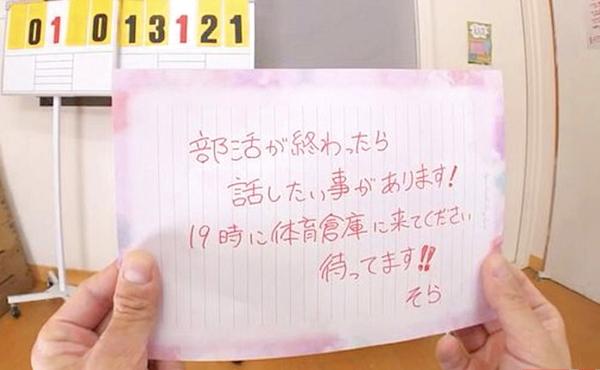 01013121
部活が終わったら
話したい事があります!
19時に体育倉庫に来てください
待ってます!!
そら